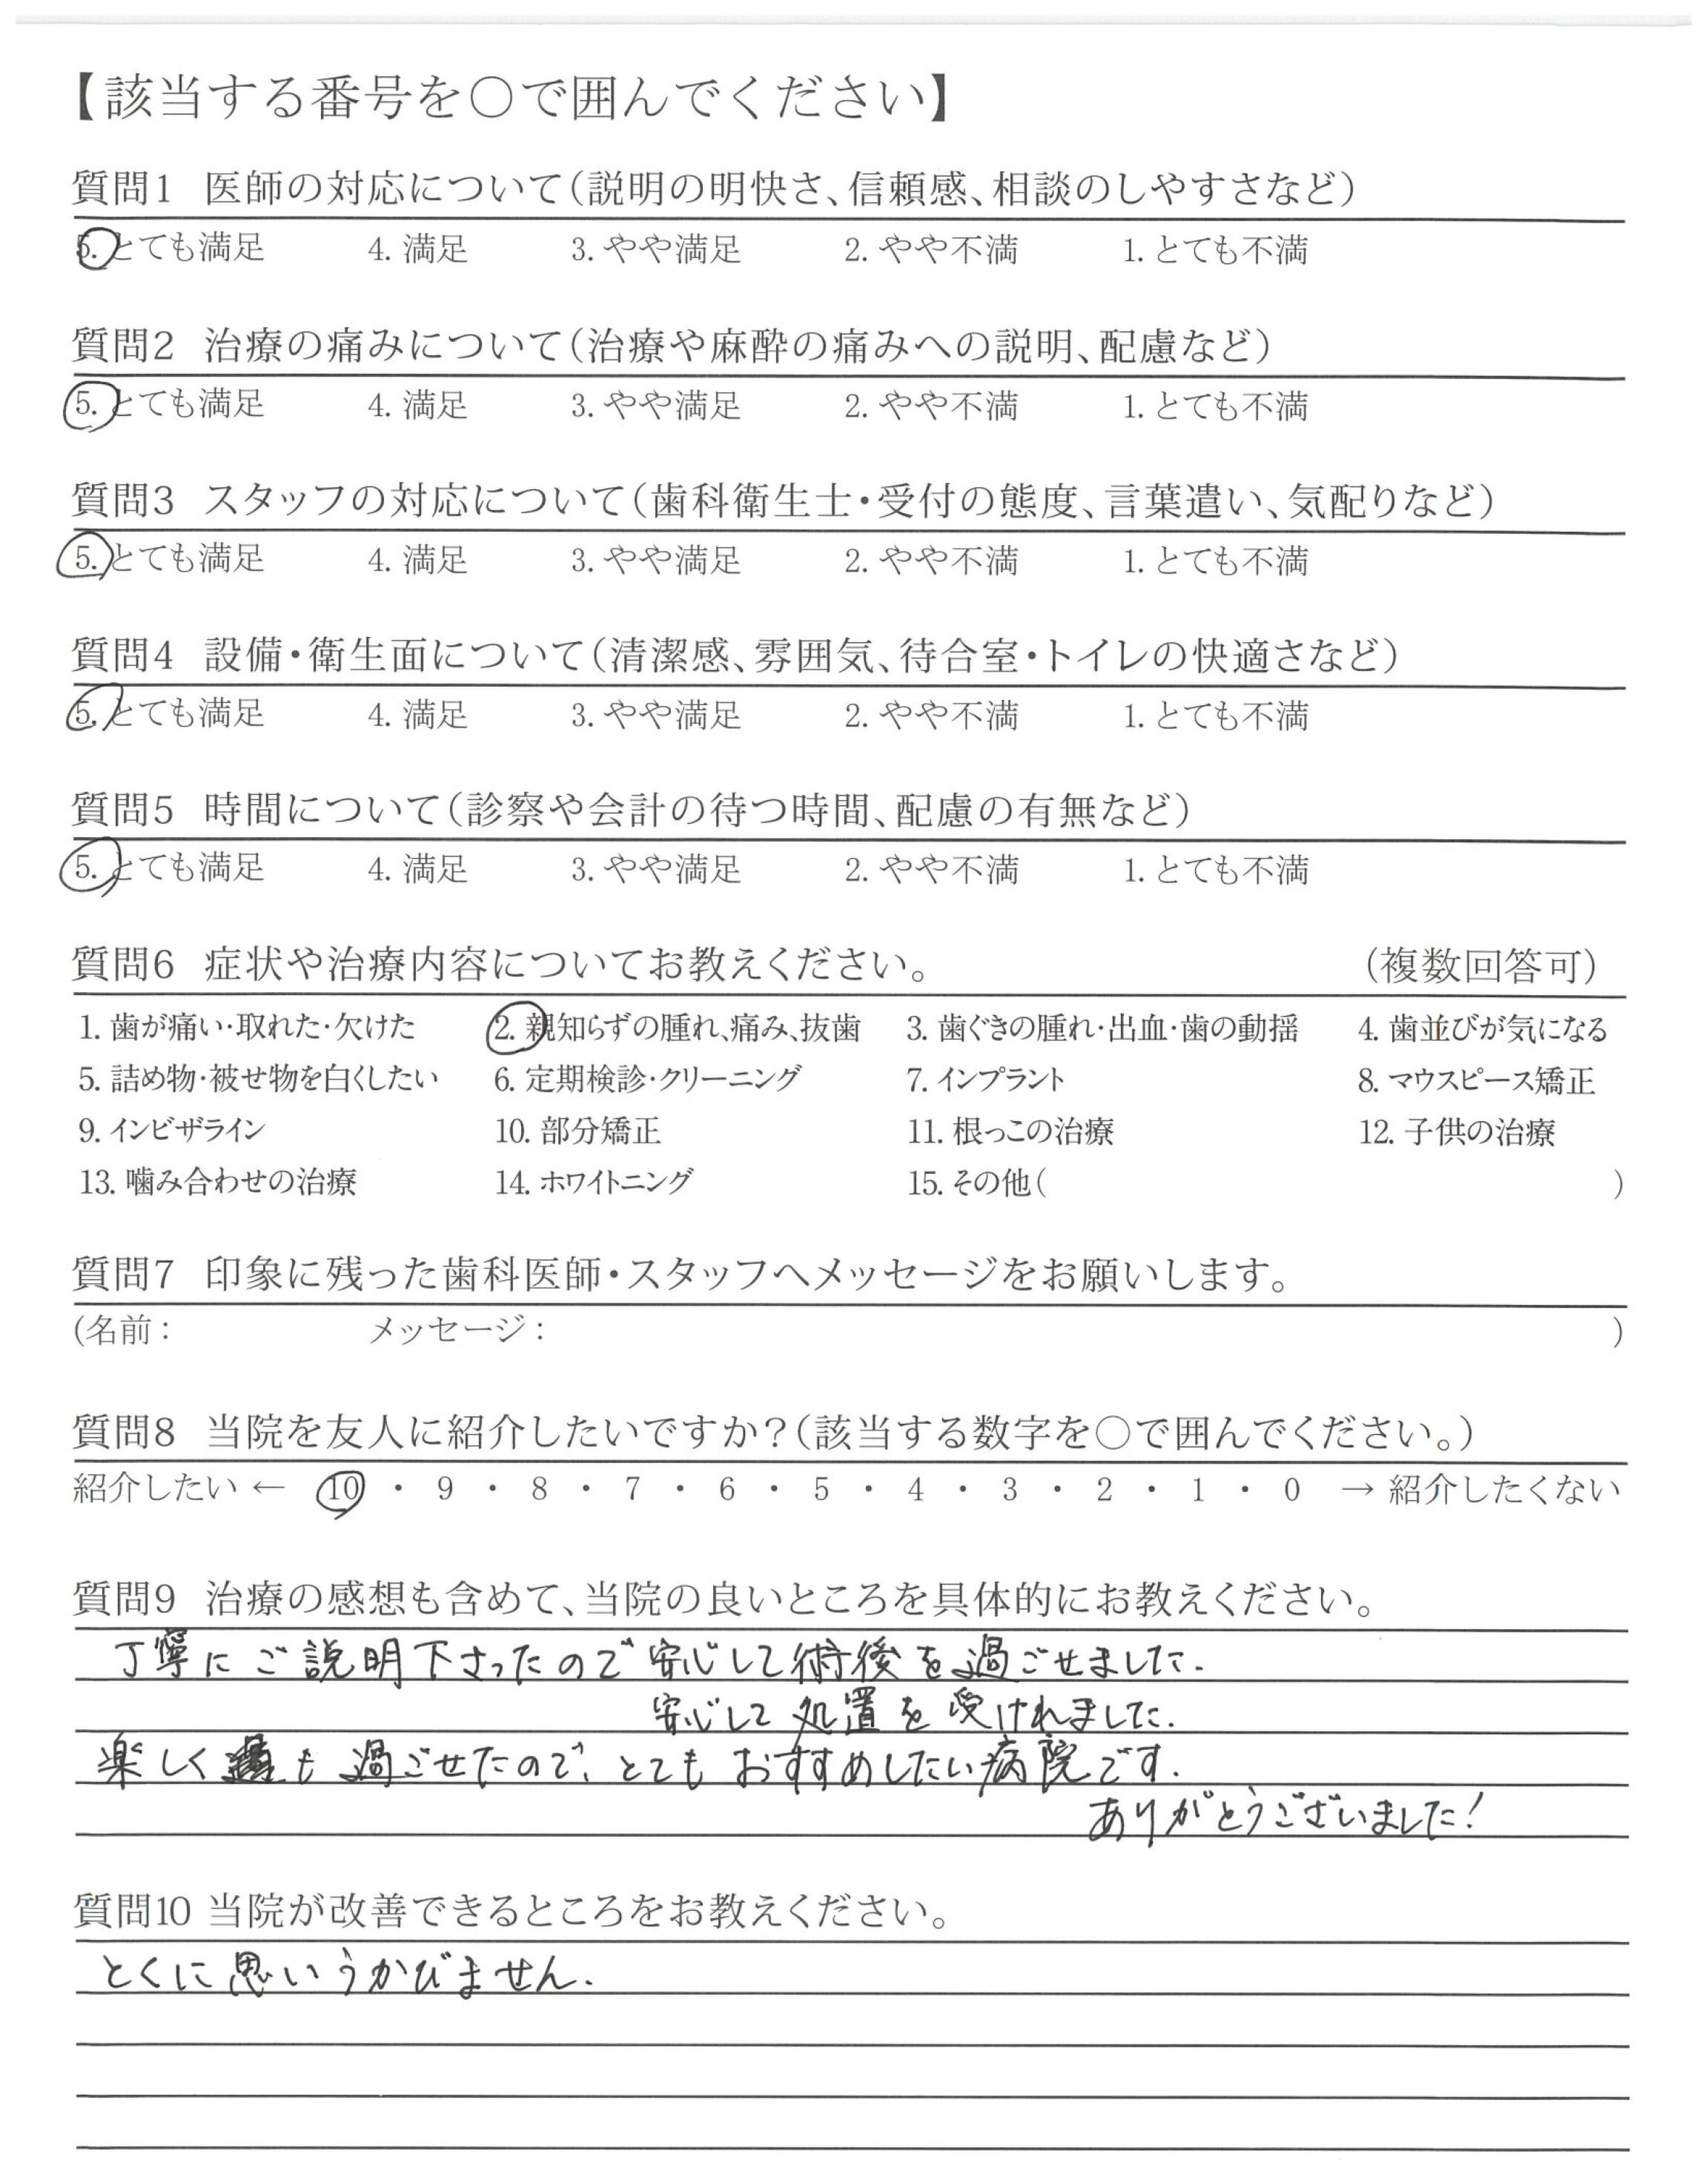 【該当する番号を○で囲んでください】
質問1 医師の対応について(説明の明快さ、信頼感、相談のしやすさなど)
5. とても満足 4. 満足 3. やや満足 2. やや不満 1. とても不満
質問2 治療の痛みについて(治療や麻酔の痛みへの説明、配慮など)
5. とても満足 4. 満足 3. やや満足 2. やや不満 1. とても不満
質問3 スタッフの対応について(歯科衛生士・受付の態度、言葉遣い、気配りなど)
5. とても満足 4. 満足 3. やや満足 2. やや不満 1. とても不満
質問4 設備・衛生面について(清潔感、雰囲気、待合室・トイレの快適さなど)
5. とても満足 4. 満足 3. やや満足 2. やや不満 1. とても不満
質問5 時間について(診察や会計の待つ時間、配慮の有無など)
5. とても満足 4. 満足 3. やや満足 2. やや不満 1. とても不満
質問6 症状や治療内容についてお教えください。 (複数回答可)
1. 歯が痛い・取れた・欠けた 2. 親知らずの腫れ、痛み、抜歯 3. 歯ぐきの腫れ・出血・歯の動揺 4. 歯並びが気になる
5. 詰め物・被せ物を白くしたい 6. 定期検診・クリーニング 7. インプラント 8. マウスピース矯正
9. インビザライン 10. 部分矯正 11. 根っこの治療 12. 子供の治療
13. 噛み合わせの治療 14. ホワイトニング 15. その他( )
質問7 印象に残った歯科医師・スタッフへメッセージをお願いします。
(名前： メッセージ： )
質問8 当院を友人に紹介したいですか?(該当する数字を○で囲んでください。)
紹介したい ← 10 ・ 9 ・ 8 ・ 7 ・ 6 ・ 5 ・ 4 ・ 3 ・ 2 ・ 1 ・ 0 → 紹介したくない
質問9 治療の感想も含めて、当院の良いところを具体的にお教えください。
丁寧にご説明下さったので安心して術後を過ごせました.
安心して処置を受けれました.
楽しくも過ごせたので、とてもおすすめしたい病院です.
ありがとうございました!
質問10 当院が改善できるところをお教えください。
とくに思いうかびません.